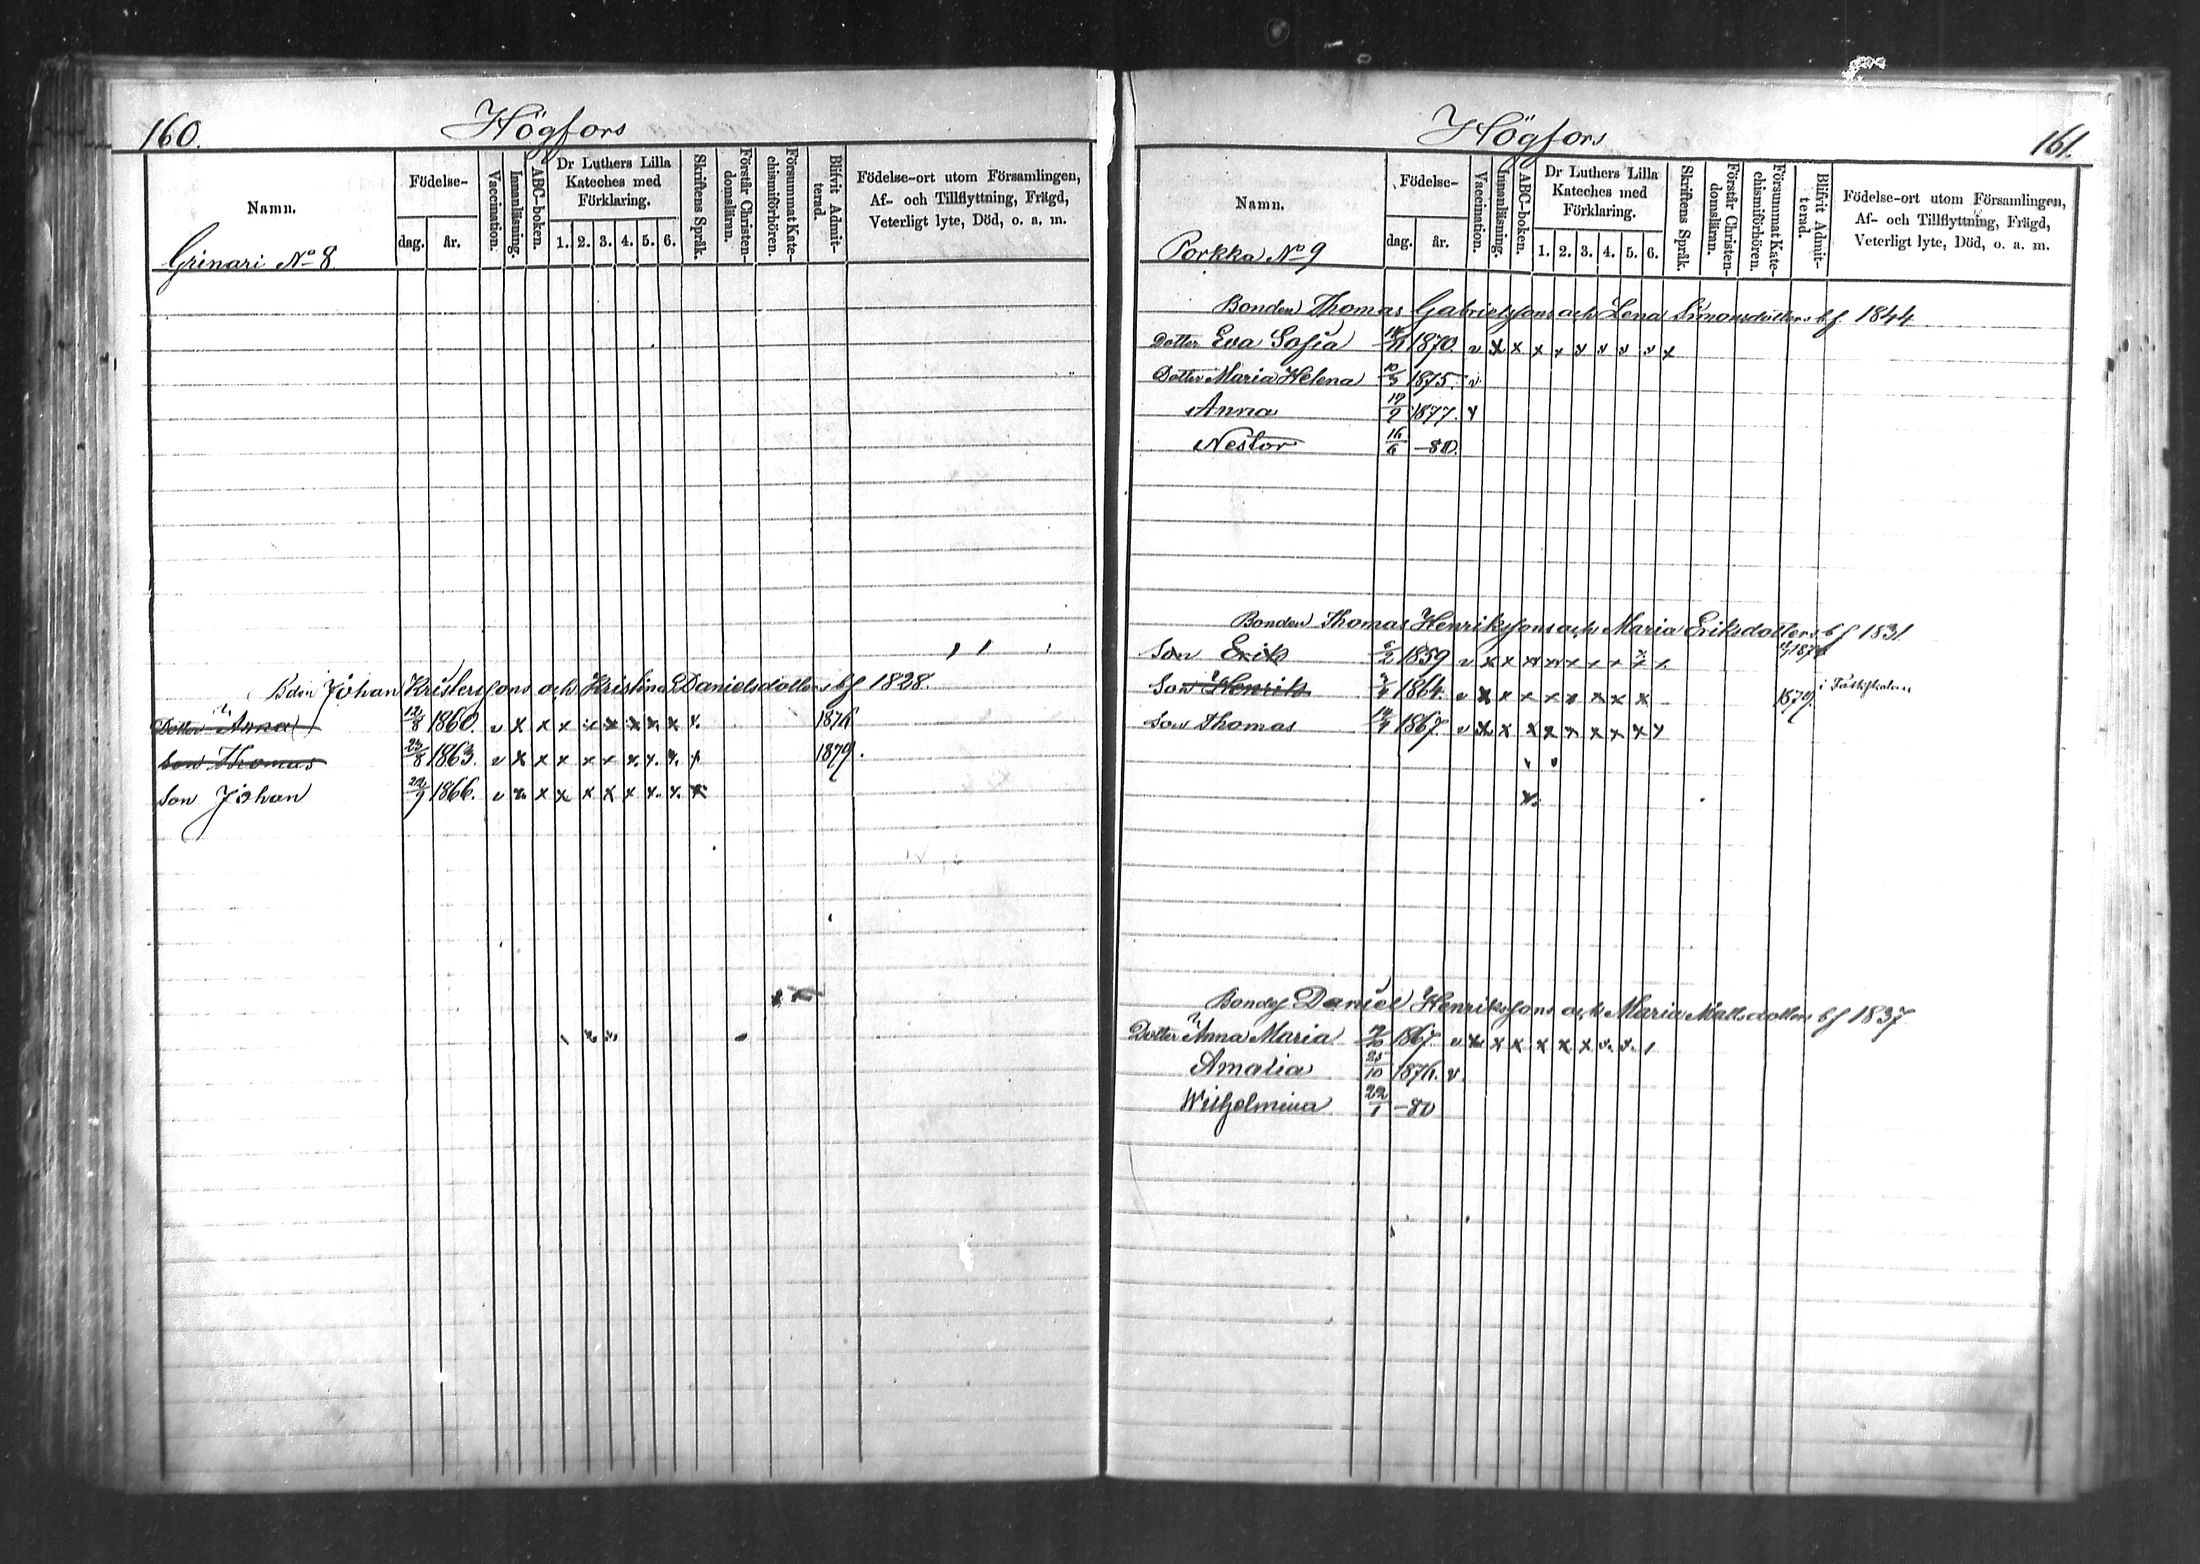 160.
Högfors
Namn.
Grinari No 8
Födelse-
dag.
år.
Vaccination.
Innanläsning.
ABC-boken.
Dr Luthers Lilla
Kateches med
Förklaring.
1. 2. 3. 4. 5. 6.
Skriftens Språk.
Förstår Christen-
domsläran.
Försummat Kate-
chismiförhören.
Blifvit Admit-
terad.
Födelse-ort utom Församlingen,
Af- och Tillflyttning, Frägd,
Veterligt lyte, Död, o. a. m.
Johan Kristerssons och Kristina Danielsdotters bf 1828.
Dotter Anna 12/8 1860. v x x x x x x x x x 1876
Son Thomas 23/8 1863. v x x x x x x x x x 1879.
Son Johan 22/9 1866. v x x x x x x x x x
Högfors
161.
Namn.
Porkka No 9
Födelse-
dag.
år.
Vaccination.
Innanläsning.
ABC-boken.
Dr Luthers Lilla
Kateches med
Förklaring.
1. 2. 3. 4. 5. 6.
Skriftens Språk.
Förstår Christen-
domsläran.
Försummat Kate-
chismiförhören.
Blifvit Admit-
terad.
Födelse-ort utom Församlingen,
Af- och Tillflyttning, Frägd,
Veterligt lyte, Död, o. a. m.
Bonden Thomas Gabrielssons och Lena Simonsdotters bf. 1844
Dotter Eva Sofia 1870. v x x x x v v v v x
Dotter Maria Helena 1875. v.
Anna 1877. v
Nestor 16/6 -80.
Bonden Thomas Henrikssons och Maria Eriksdotters bf 1831.
Son Erik 1859 v x x x x x x x
Son Henrik 1864. v x x x x x x x x 1879.
Son Thomas 1867. v x x x x x x x x
Bonden Daniel Henrikssons och Maria Matsdotters bf 1837
Dotter Anna Maria 1867. v x x x x x x v. v.
Amalia 25/10 1876. v.
Wilhelmina 22/1 -80